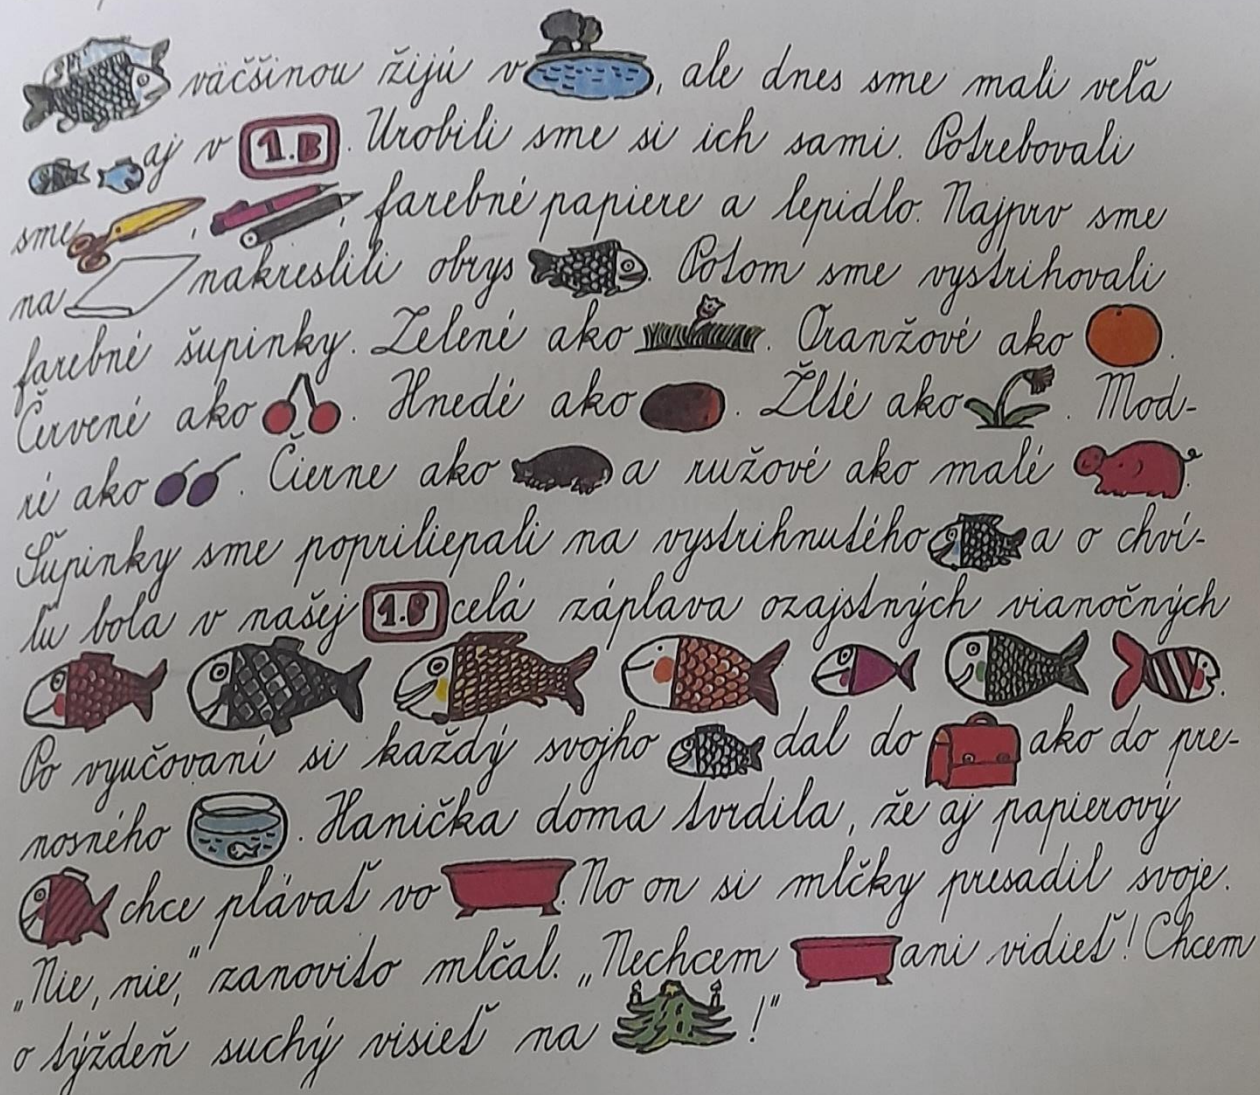 väčšinou žijú v , ale dnes sme mali veľa
aj v 1.B . Urobili sme si ich sami. Potrebovali
sme , , farebné papiere a lepidlo. Najprv sme
na nakreslili obrys . Potom sme vystrihovali
farebné šupinky. Zelené ako . Oranžové ako .
Červené ako . Hnedé ako . Žlté ako . Mod-
ré ako . Čierne ako a ružové ako malé .
Šupinky sme popriliepali na vystrihnutého a o chví-
ľu bola v našej 1.B celá záplava ozajstných vianočných
.
Po vyučovaní si každý svojho dal do ako do pre-
nosného . Hanička doma tvrdila, že aj papierový
chce plávať vo . No on si mlčky presadil svoje.
„Nie, nie," zanovito mlčal. „Nechcem ani vidieť! Chcem
o týždeň suchý visieť na !"